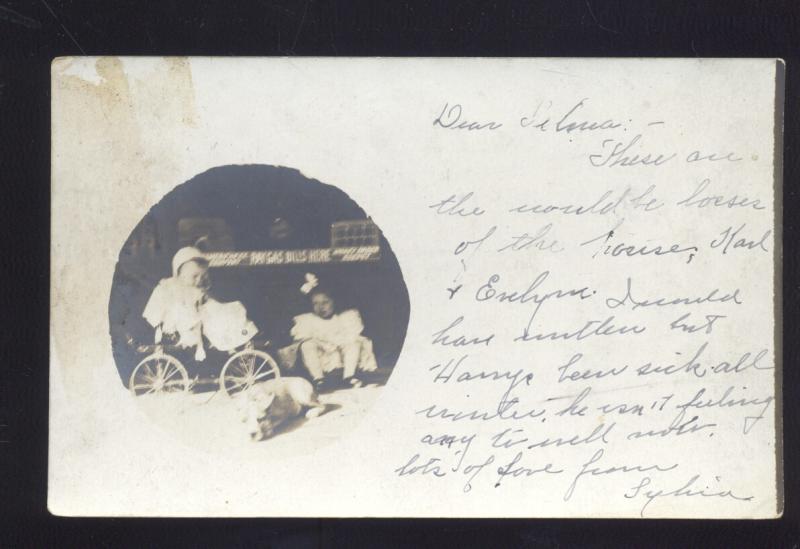 PAY GAS BILLS HERE
Dear Selma:-
These are
the would be bosses
of the house, Karl
& Evelyn. I would
have written but
Harrys been sick all
winter, he isn't feeling
any to well now.
lots of love from
Sylvia